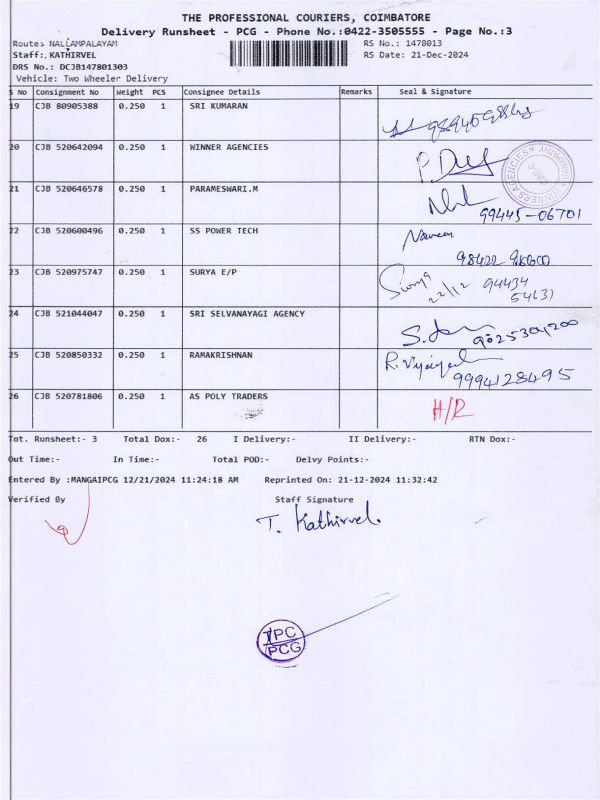 THE PROFESSIONAL COURIERS, COIMBATORE
Delivery Runsheet - PCG - Phone No.:0422-3505555 - Page No.:3
Route: NALLAMPALAYAM RS No.: 1478013
Staff: KATHIRVEL RS Date: 21-Dec-2024
DRS No.: DCJB147801303
Vehicle: Two Wheeler Delivery
S No Consignment No Weight PCS Consignee Details Remarks Seal & Signature
19 CJB 80905388 0.250 1 SRI KUMARAN
20 CJB 520642094 0.250 1 WINNER AGENCIES
21 CJB 520646578 0.250 1 PARAMESWARI.M 99445-06701
22 CJB 520600496 0.250 1 SS POWER TECH Naveen
23 CJB 520975747 0.250 1 SURYA E/P Surya 22/12 94434
54631
24 CJB 521044047 0.250 1 SRI SELVANAYAGI AGENCY 9025304200
25 CJB 520850332 0.250 1 RAMAKRISHNAN 9994128495
26 CJB 520781806 0.250 1 AS POLY TRADERS H/R
Tot. Runsheet:- 3 Total Dox:- 26 I Delivery:- II Delivery:- RTN Dox:-
Out Time:- In Time:- Total POD:- Delvy Points:-
Entered By :MANGAIPCG 12/21/2024 11:24:18 AM Reprinted On: 21-12-2024 11:32:42
Verified By Staff Signature
T. Kathirvel.
TPC
PCG